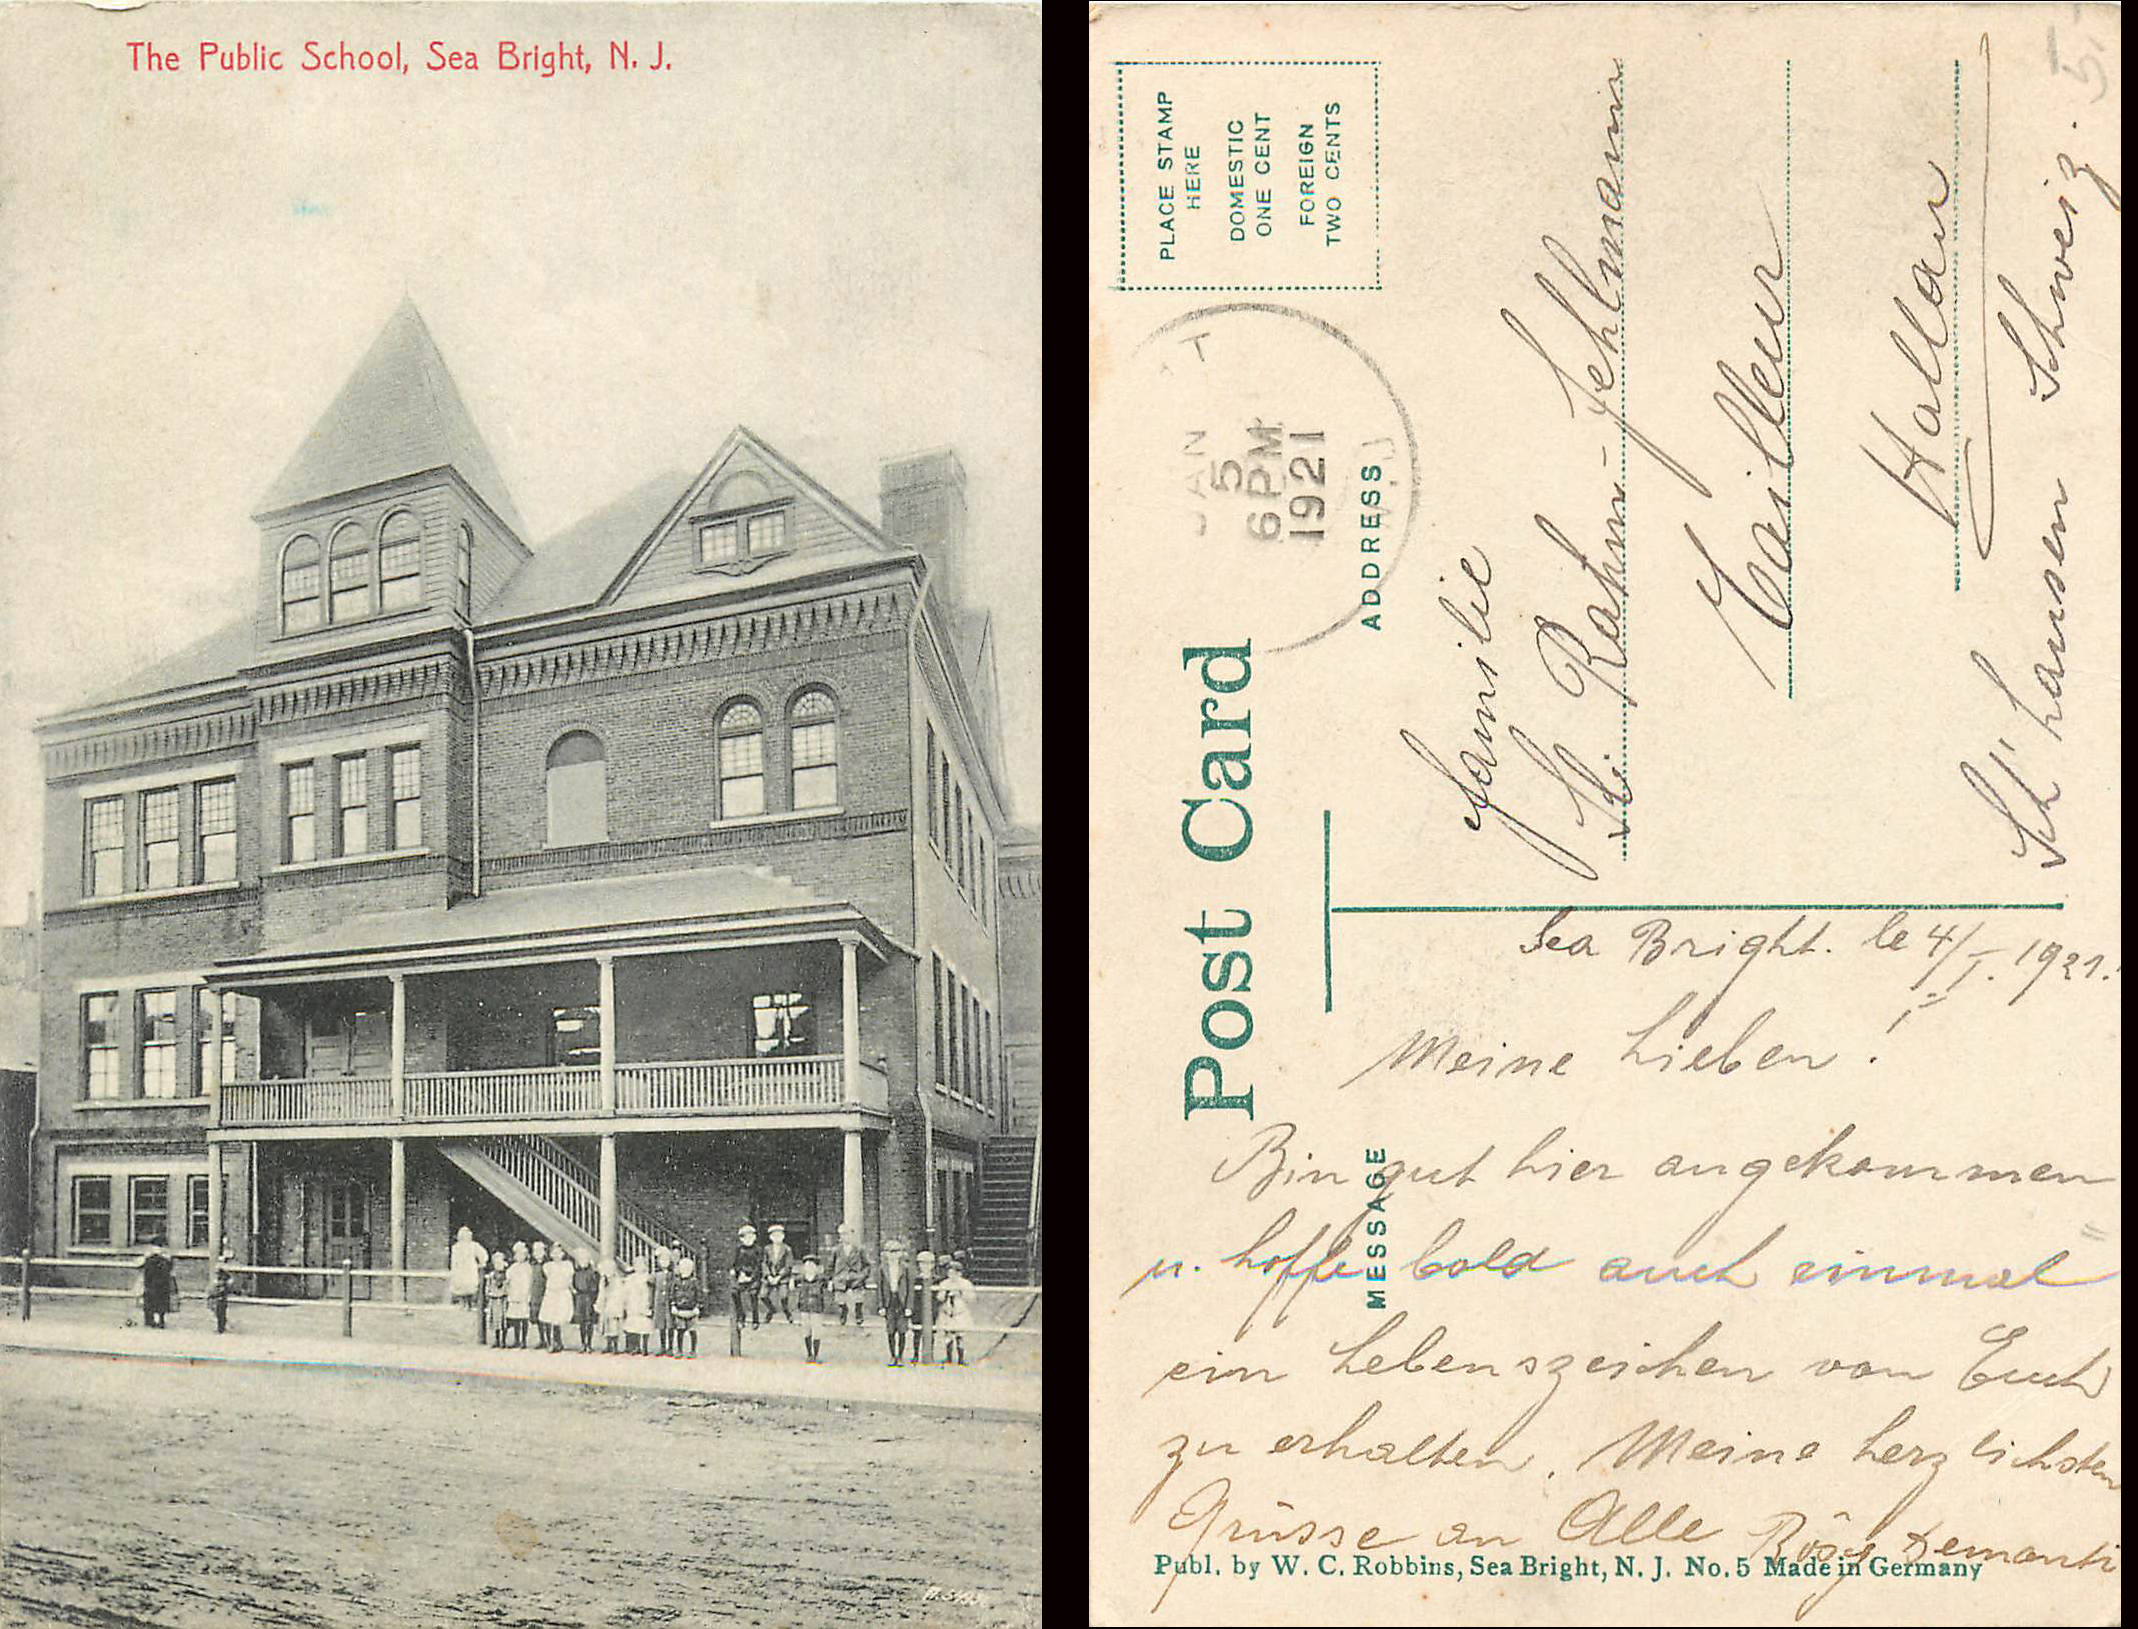 The Public School, Sea Bright, N. J.
PLACE STAMP
HERE
DOMESTIC
ONE CENT
FOREIGN
TWO CENTS
JAN
5
6 PM
1921
Post Card
ADDRESS
Familie
Rahm-Fehlmann
Coiffeur
Hallau
Sch'hausen Schweiz.
MESSAGE
Sea Bright. le 4/I. 1921.
Meine Lieben!
Bin gut hier angekommen
u. hoffe bald auch einmal
ein Lebenszeichen von Euch
zu erhalten. Meine herzlichsten
Grüsse an Alle Rösy
Publ. by W. C. Robbins, Sea Bright, N. J. No. 5 Made in Germany